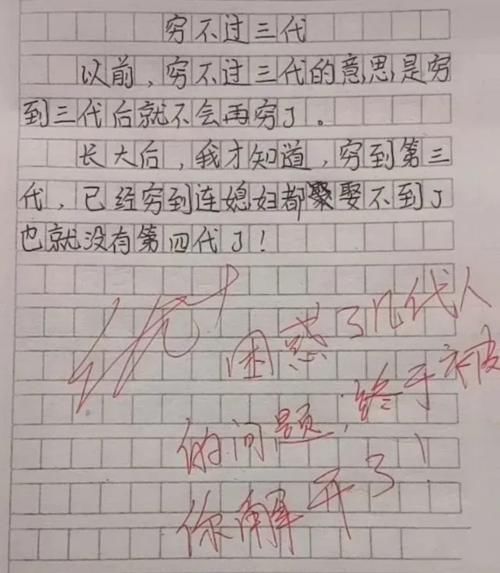 穷不过三代
以前,穷不过三代的意思是穷
到三代后就不会再穷了。
长大后,我才知道,穷到第三
代,已经穷到连媳妇都娶不到了
也就没有第四代了!
优+
困惑了几代人
的问题,终于被
你解开了!